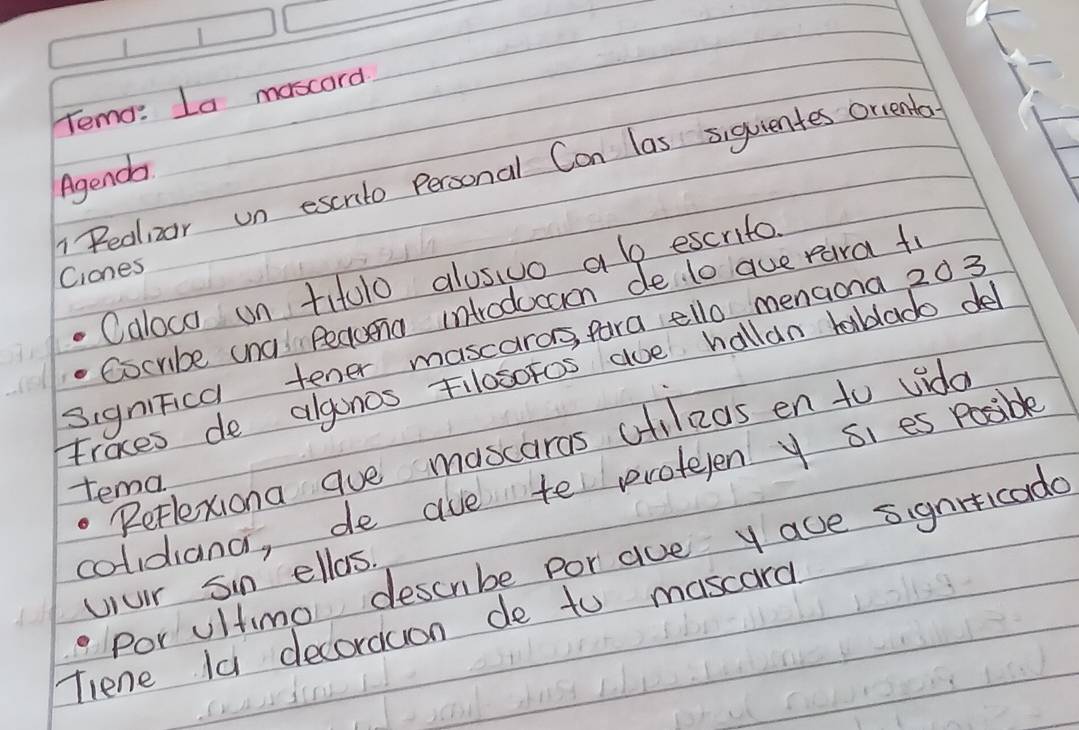 Tema: La mascara.
Agenda.
1 Realizar un escrito Personal Con las siguientes Orienta-
Ciones
• Coloca un titulo alusivo a lo escrito.
• Escribe una Pequeña introduccion de lo que para ti
significa tener mascaras, para ello menciona 2 o 3
frases de algunos Filosofos que hallan hablado del
tema.
• Reflexiona que mascaras utilizas en tu vida
cotidiana, de que te protejen y si es posible
vivir sin ellas.
• Por ultimo describe Por que y que significado
Tiene la decoracion de tu mascara.